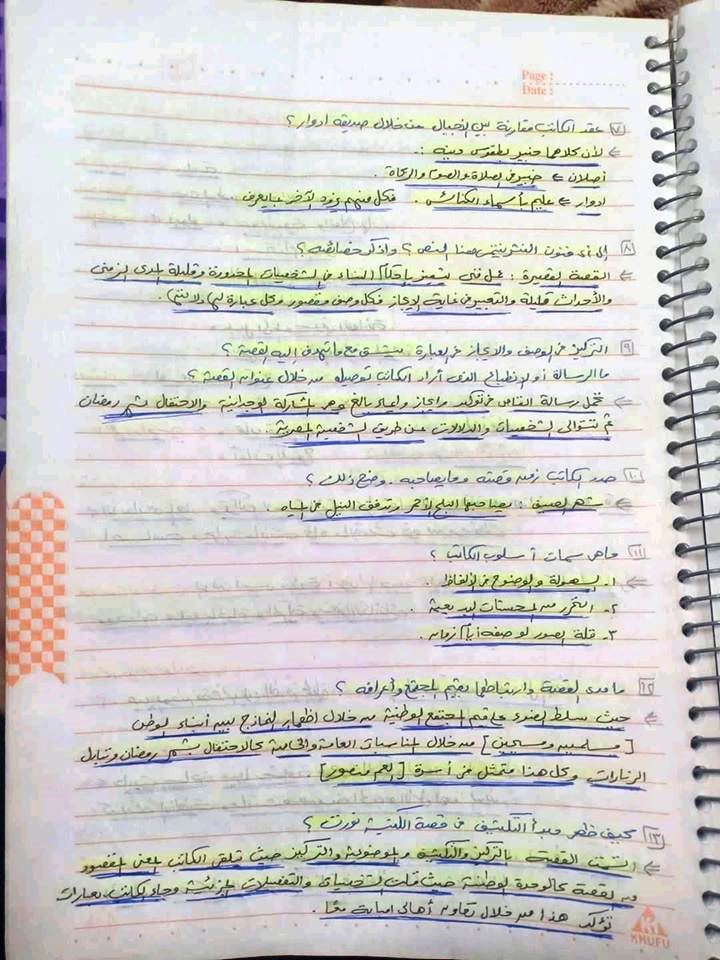 Page :
Date :
٧ عقد الكاتب مقارنة بين الأجيال من خلال صديقه ادوار ؟
لأن كلاهما خبير بطقوس دينه :
أصلان ← خبير في الصلاة والصوم والزكاة .
ادوار ← عليم بأسماء الكنائس . فكل منهم يزود الآخر بالمعرف
٨ إلى أى فنون النثر ينتمى هذا النص ؟ واذكر خصائصه ؟
القصة القصيرة : عمل فنى يتميز بإحكام البناء فى الشخصيات المحدودة وقليلة المدى الزمنى
والأحداث قليلة والتعبير فى غاية الإيجاز فكل وصف مقصور وكل عبارة لها دلالتها .
٩ التركيز فى الوصف والايجاز فى العبارة يتسق مع ما تهدف إليه القصة ؟
ما الرسالة أو الإنطباع الذى أراد الكاتب توصيله من خلال عنوانه القصة ؟
تحمل رسالة الناس فى تركيز وايجاز وايماء بالغ وهى المشاركة الوجدانية والاحتفال بشهر رمضان
ثم تتوالى الشخصيات والدلالات عن طريق الشخصية المصرية .
١٠ حدد الكاتب زمن قصته وما يصاحبه . وضح ذلك ؟
شهر الصيف : يصاحبها البلح الأحمر وتدفق النيل فى المياه
١١ ما هى سمات أسلوب الكاتب ؟
١- السهولة والوضوح فى الألفاظ .
٢- التحرر من المحسنات البديعية .
٣- قلة الصور لوصفه أيام زمان .
١٢ ما مدى القصة وارتباطها بقيم المجتمع وأعرافه ؟
حيث سلط الضوء على قيم المجتمع الوطنية من خلال اظهار النماذج بين أبناء الوطن
[مسلمين ومسيحين] من خلال المناسبات العامة والخاصة كالاحتفال بشهر رمضان وتبادل
الزيارات وكل هذا متمثل فى أسرة [ منصور] .
١٣ كيف ظهر مبدأ التكثيف فى قصة الكنيسة نورت ؟
اتسمت القصة بالتركيز والتكثيف والموضوعية والتركيز حيث تلقى الكاتب المعنى المقصود
من القصة كالوحدة الوطنية حيث قلت الشخصيات والتفصيلات الجزئية وجاء الكاتب بعبارات
تؤكد هذا من خلال تعاون أهالى امبابة معا .
KHUFU